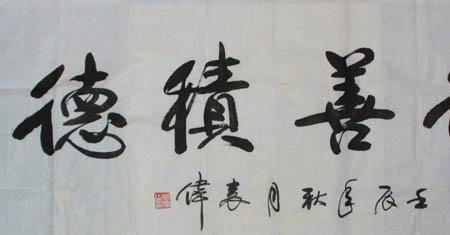 善積德
壬辰年秋月偉